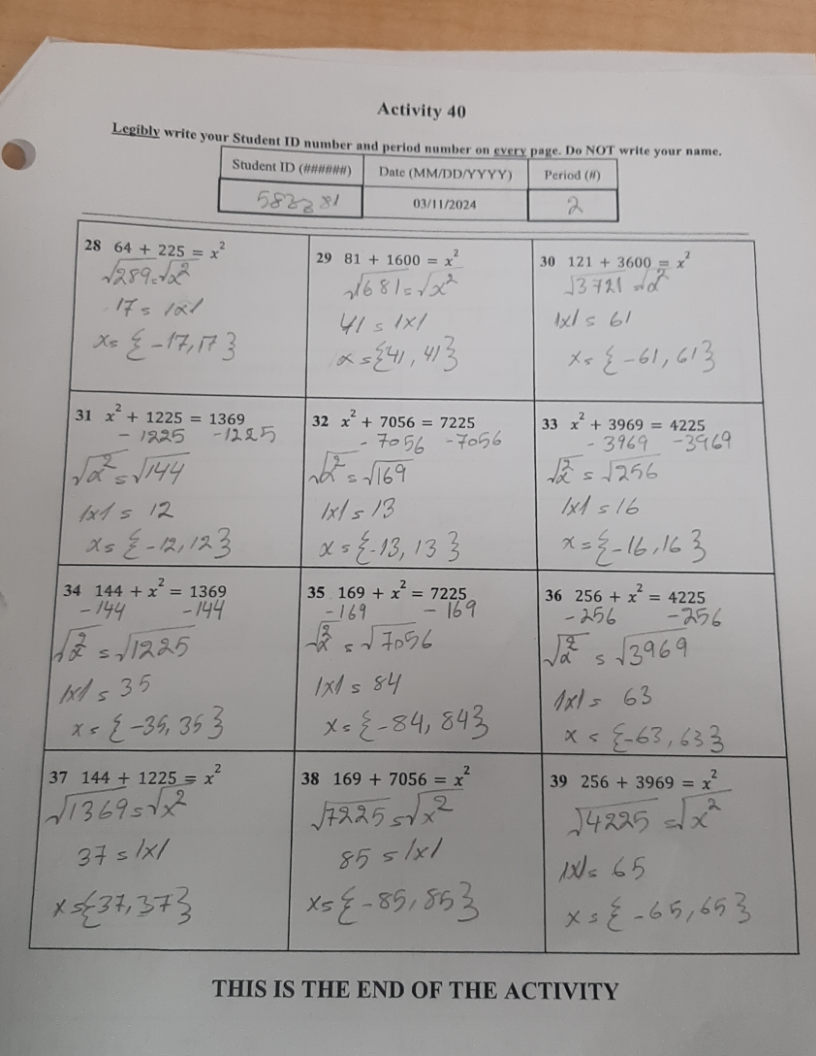 Activity 40
Legibly write your Student ID number and period number on every page. Do NOT write your name.
Student ID (######) Date (MM/DD/YYYY) Period (#)
03/11/2024 2
28 64 + 225 = x²
√289 = √x²
17 = |x|
x = {-17, 17}
29 81 + 1600 = x²
√1681 = √x²
41 = |x|
x = {41, 41}
30 121 + 3600 = x²
√3721 = √x²
|x| = 61
x = {-61, 61}
31 x² + 1225 = 1369
- 1225 -1225
√x² = √144
|x| = 12
x = {-12, 12}
32 x² + 7056 = 7225
- 7056 -7056
√x² = √169
|x| = 13
x = {-13, 13}
33 x² + 3969 = 4225
- 3969 -3969
√x² = √256
|x| = 16
x = {-16, 16}
34 144 + x² = 1369
-144 -144
√x² = √1225
|x| = 35
x = {-35, 35}
35 169 + x² = 7225
-169 - 169
√x² = √7056
|x| = 84
x = {-84, 84}
36 256 + x² = 4225
-256 -256
√x² = √3969
|x| = 63
x = {-63, 63}
37 144 + 1225 = x²
√1369 = √x²
37 = |x|
x = {37, 37}
38 169 + 7056 = x²
√7225 = √x²
85 = |x|
x = {-85, 85}
39 256 + 3969 = x²
√4225 = √x²
|x| = 65
x = {-65, 65}
THIS IS THE END OF THE ACTIVITY